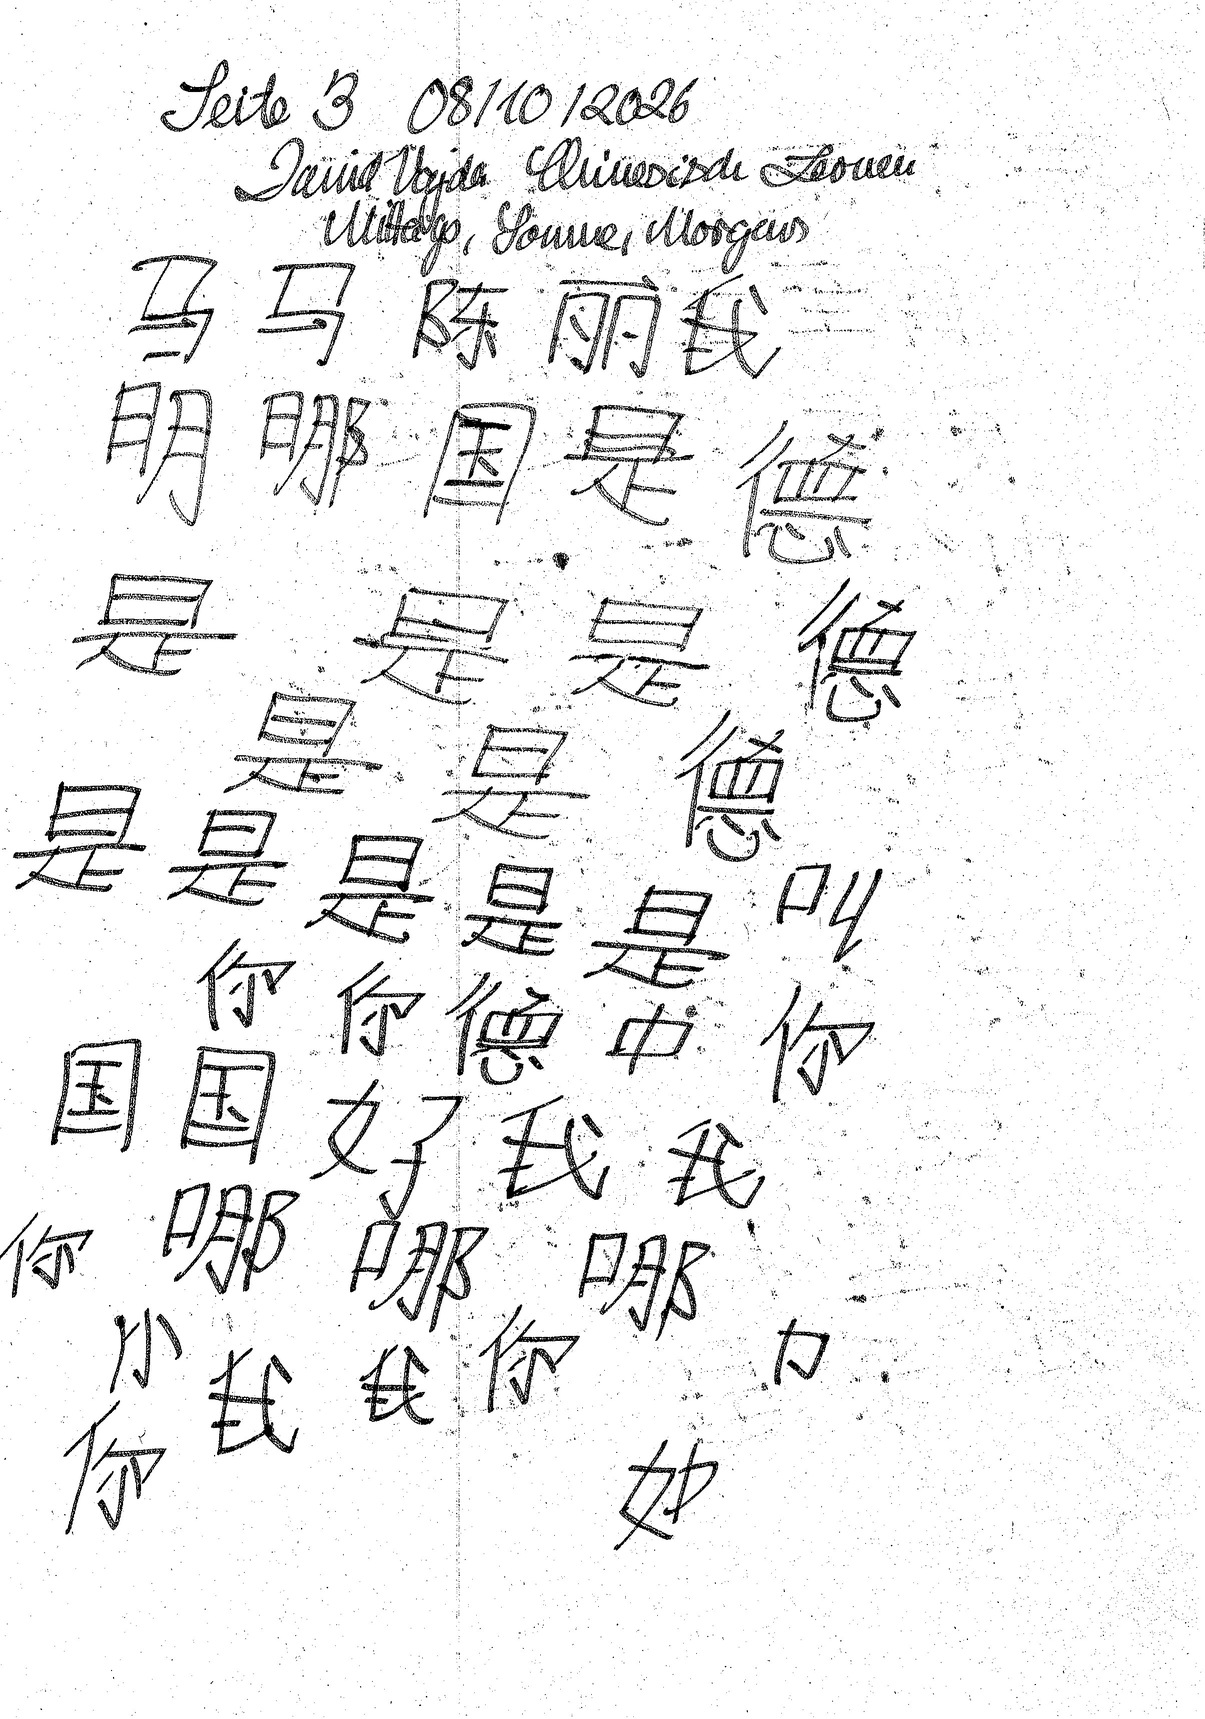 Seite 3 08/10/2026
David Vajda Chinesisch Lernen
Mittags, Sonne, Morgens
马 马 陈 丽 我
明 哪 国 是 德
是 是 是 德
是 是 德
是 是 是 是 是 叫
你 你 德 中 你
国 国 好 我 我
你 哪 哪 哪
小 我 我 你
你